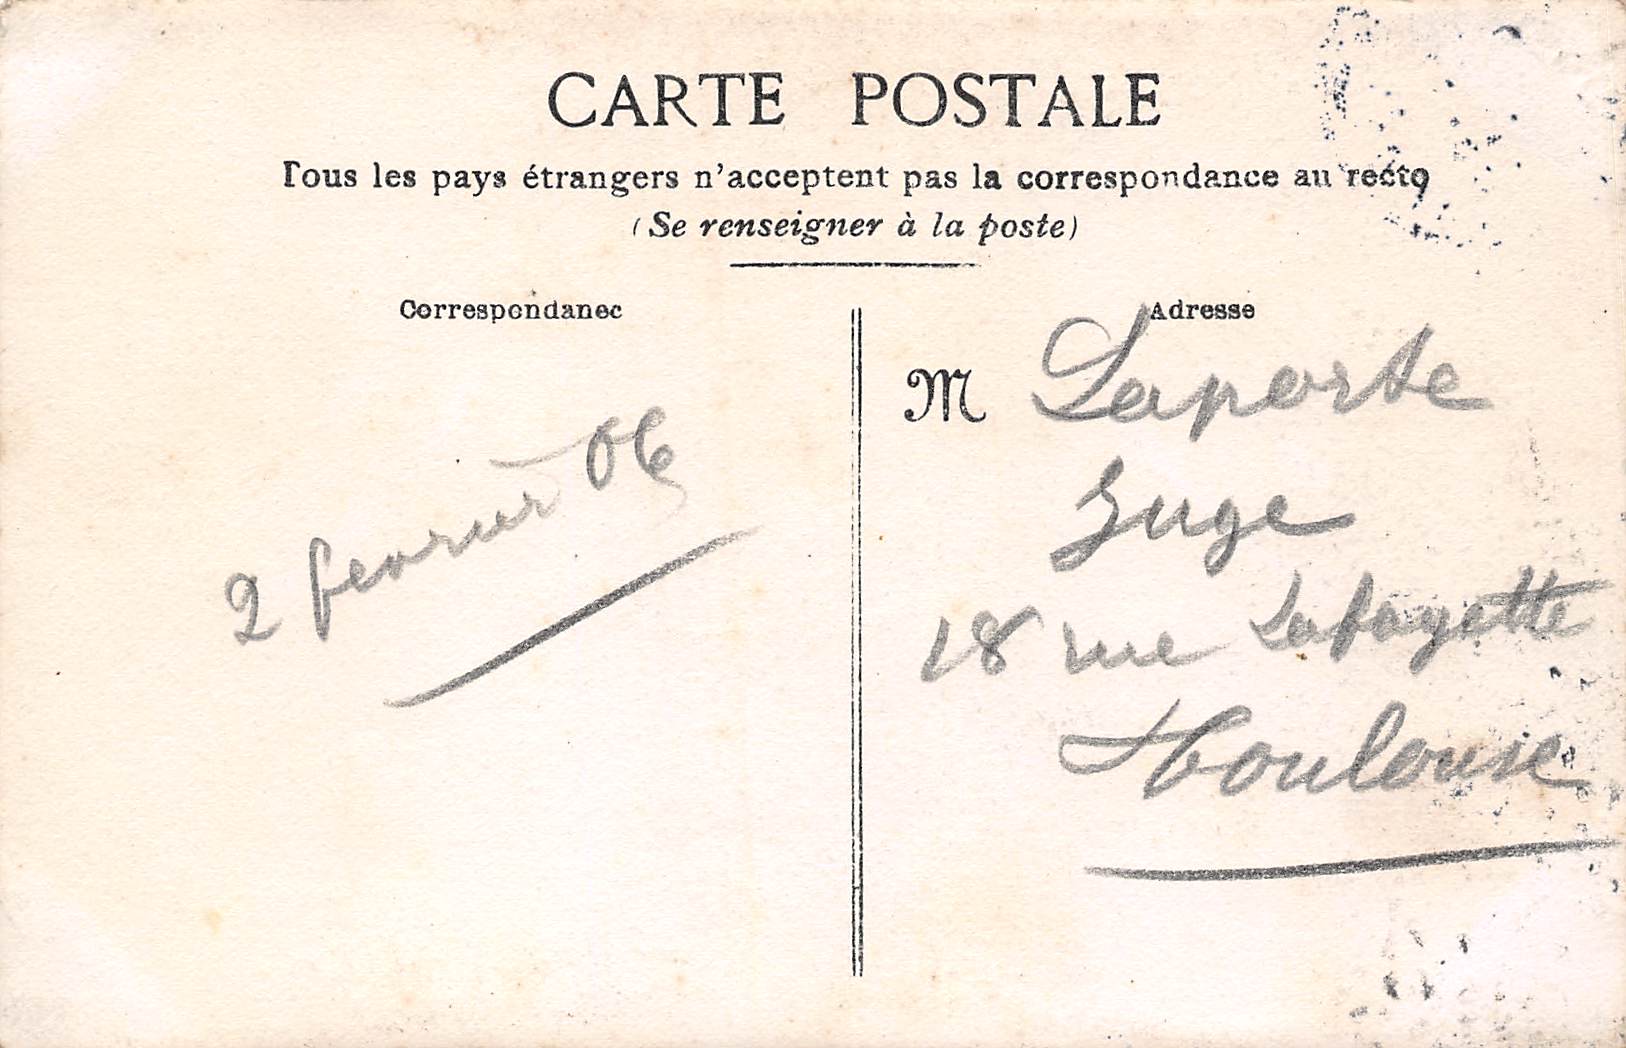 CARTE POSTALE
Tous les pays étrangers n'acceptent pas la correspondance au recto
(Se renseigner à la poste)
Correspondance
Adresse
2 fevrier 06
M Laporte
Juge
18 rue Lafayette
Toulouse